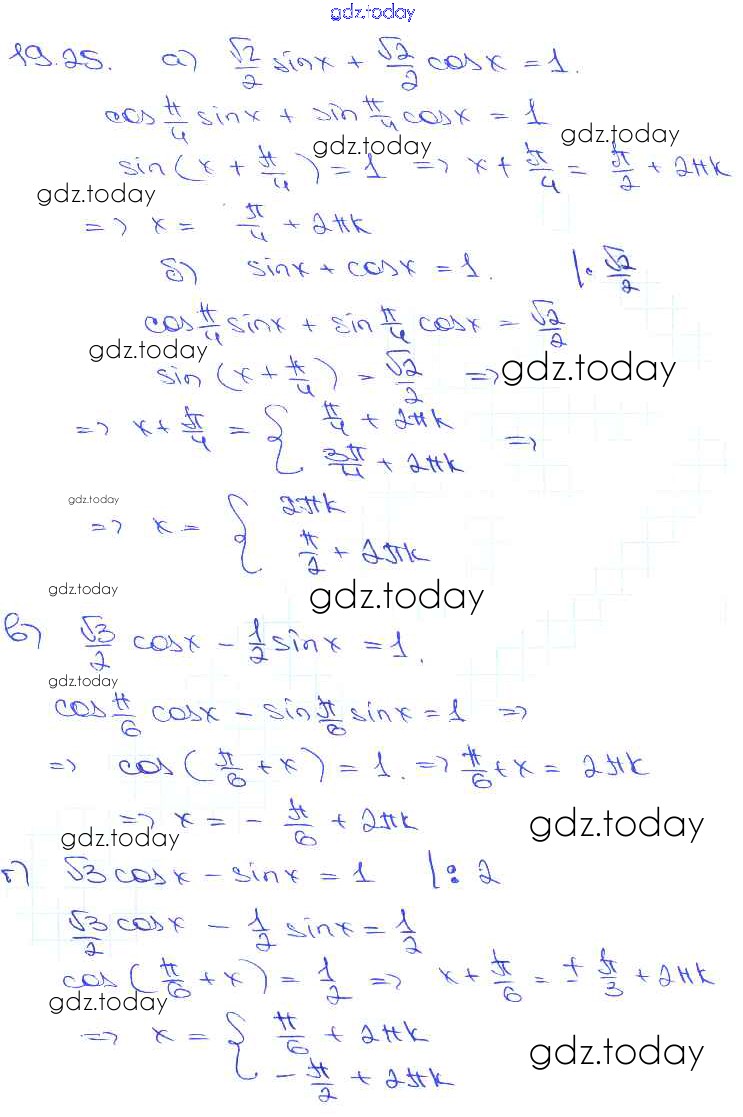 gdz.today
19.25. а) √2/2 sinx + √2/2 cosx = 1.
cos π/4 sinx + sin π/4 cosx = 1
gdz.today gdz.today
sin(x + π/4) = 1 => x + π/4 = π/2 + 2πk
gdz.today
=> x = π/4 + 2πk
б) sinx + cosx = 1. |: √2/2
cos π/4 sinx + sin π/4 cosx = √2/2
gdz.today
sin (x + π/4) = √2/2 =>
gdz.today
=> x + π/4 = { π/4 + 2πk
3π/4 + 2πk =>
gdz.today
=> x = { 2πk
π/2 + 2πk
gdz.today
gdz.today
в) √3/2 cosx - 1/2 sinx = 1.
gdz.today
cos π/6 cosx - sin π/6 sinx = 1 =>
=> cos (π/6 + x) = 1. => π/6 + x = 2πk
=> x = - π/6 + 2πk
gdz.today
gdz.today
г) √3 cosx - sinx = 1 |: 2
√3/2 cosx - 1/2 sinx = 1/2
cos (π/6 + x) = 1/2 => x + π/6 = ± π/3 + 2πk
gdz.today
=> x = { π/6 + 2πk
- π/2 + 2πk
gdz.today